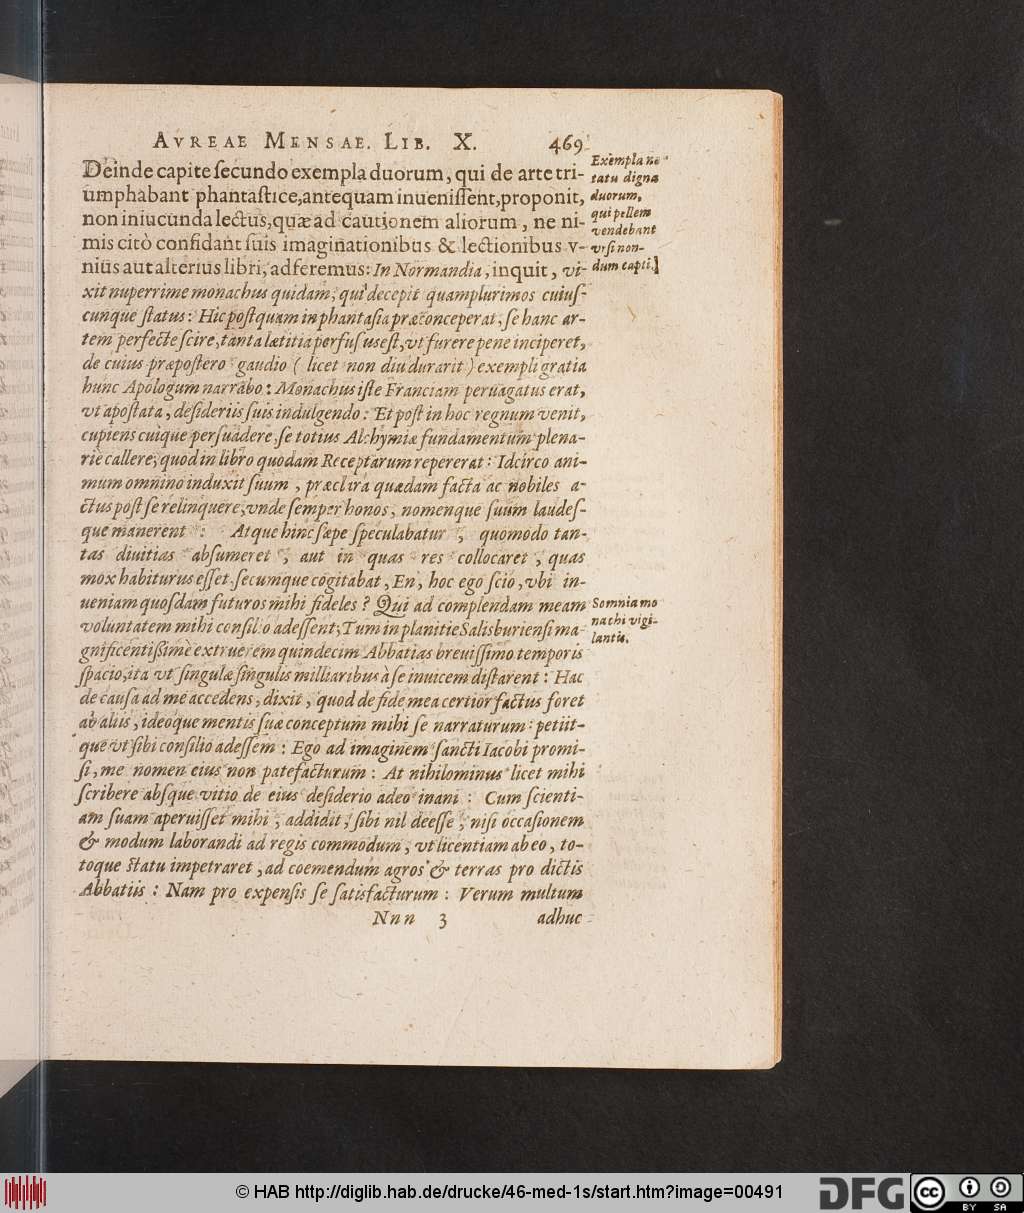 AVREAE MENSAE. LIB. X. 469
Deinde capite ſecundo exempla duorum, qui de arte tri-
umphabant phantaſtice, antequam inueniſſent, proponit,
non iniucunda lectus, quæ ad cautionem aliorum, ne ni-
mis citò confidant ſuis imaginationibus & lectionibus v-
nius aut alterius libri, adferemus: In Normandia, inquit, vi-
xit nuperrime monachus quidam, qui decepit quamplurimos cuiuſ-
cunque ſtatus: Hic poſtquam in phantaſia præconceperat, ſe hanc ar-
tem perfecte ſcire, tanta lætitia perfuſus eſt, vt furere pene inciperet,
de cuius præpoſtero gaudio ( licet non diu durarit ) exempli gratia
hunc Apologum narrabo: Monachus iſte Franciam peruagatus erat,
vt apoſtata, deſideriis ſuis indulgendo: Et poſt in hoc regnum venit,
cupiens cuique perſuadere, ſe totius Alchymiæ fundamentum plena-
rie callere, quod in libro quodam Receptarum repererat: Idcirco ani-
mum omnino induxit ſuum, præclara quædam facta ac nobiles a-
ctus poſt ſe relinquere, vnde ſemper honos, nomenque ſuum laudeſ-
que manerent : Atque hinc ſæpe ſpeculabatur, quomodo tan-
tas diuitias abſumeret, aut in quas res collocaret, quas
mox habiturus eſſet, ſecumque cogitabat, En, hoc ego ſcio, vbi in-
ueniam quoſdam futuros mihi fideles? Qui ad complendam meam
voluntatem mihi conſilio adeſſent; Tum in planitie Salisburienſi ma-
gnificentiſſime extruerem quindecim Abbatias breuiſſimo temporis
ſpacio, ita vt ſingulæ ſingulis milliaribus à ſe inuicem diſtarent: Hac
de cauſa ad me accedens, dixit, quod de fide mea certior factus foret
ab aliis, ideoque mentis ſuæ conceptum mihi ſe narraturum: petiit-
que vt ſibi conſilio adeſſem: Ego ad imaginem ſancti Iacobi promi-
ſi, me nomen eius non patefacturum: At nihilominus licet mihi
ſcribere abſque vitio de eius deſiderio adeo inani: Cum ſcienti-
am ſuam aperuiſſet mihi, addidit, ſibi nil deeſſe, niſi occaſionem
& modum laborandi ad regis commodum, vt licentiam ab eo, to-
toque ſtatu impetraret, ad coemendum agros & terras pro dictis
Abbatiis: Nam pro expenſis ſe ſatisfacturum: Verum multum
Nnn 3 adhuc
Exempla no
tatu digna
duorum,
qui pellem
vendebant
vrſi non-
dum capti.]
Somnia mo
nachi vigi-
lantis.
© HAB http://diglib.hab.de/drucke/46-med-1s/start.htm?image=00491
DFG
cc
BY SA